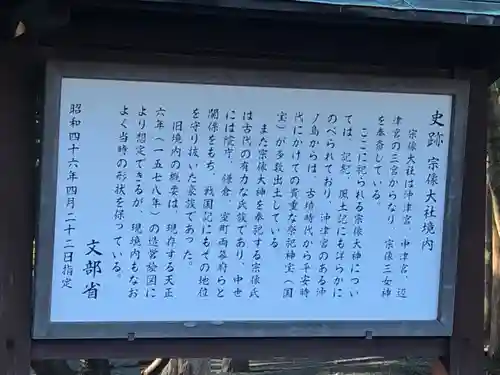 史跡 宗像大社境内
宗像大社は沖津宮、中津宮、辺
津宮の三宮からなり、宗像三女神
を奉斎している。
ここに祀られる宗像大神につい
ては、記紀、風土記にも詳らかに
のべられており、沖津宮のある沖
ノ島からは、古墳時代から平安時
代にかけての貴重な祭祀神宝（国
宝）が多数出土している。
また宗像大神を奉祀する宗像氏
は古代の有力な氏族であり、中世
には院庁、鎌倉、室町両幕府らと
関係をもち、戦国記にもその地位
を守り抜いた豪族であった。
旧境内の概要は、現存する天正
六年（一五七八年）の造営絵図に
より想定できるが、現境内もなお
よく当時の形状を保っている。
昭和四十六年四月二十二日指定
文部省